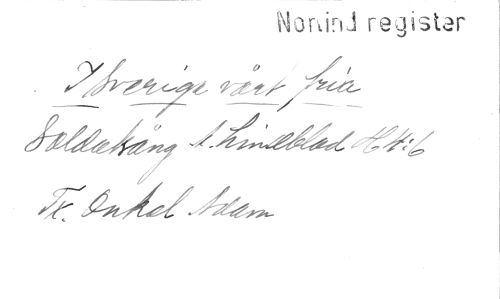 Nonind register
I Sverige vårt fria
Soldatsång A. Lindblad H 4:6
Tx. Onkel Adam